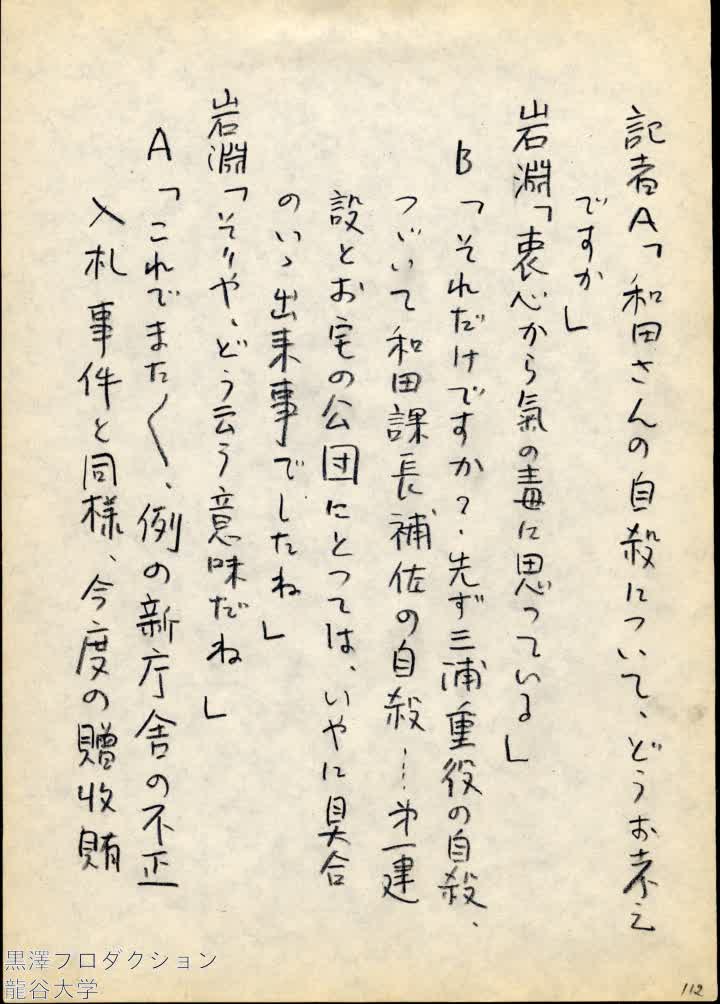 記者A「和田さんの自殺について、どうお考え
ですか」
岩淵「衷心から氣の毒に思っている」
B「それだけですか?、先ず三浦重役の自殺、
つゞいて和田課長補佐の自殺…第一建
設とお宅の公団にとっては、いやに具合
のいゝ出来事でしたね」
岩淵「そりや、どう云う意味だね」
A「これでまた〱、例の新庁舎の不正
入札事件と同様、今度の贈收賄
黒澤プロダクション
龍谷大学
112